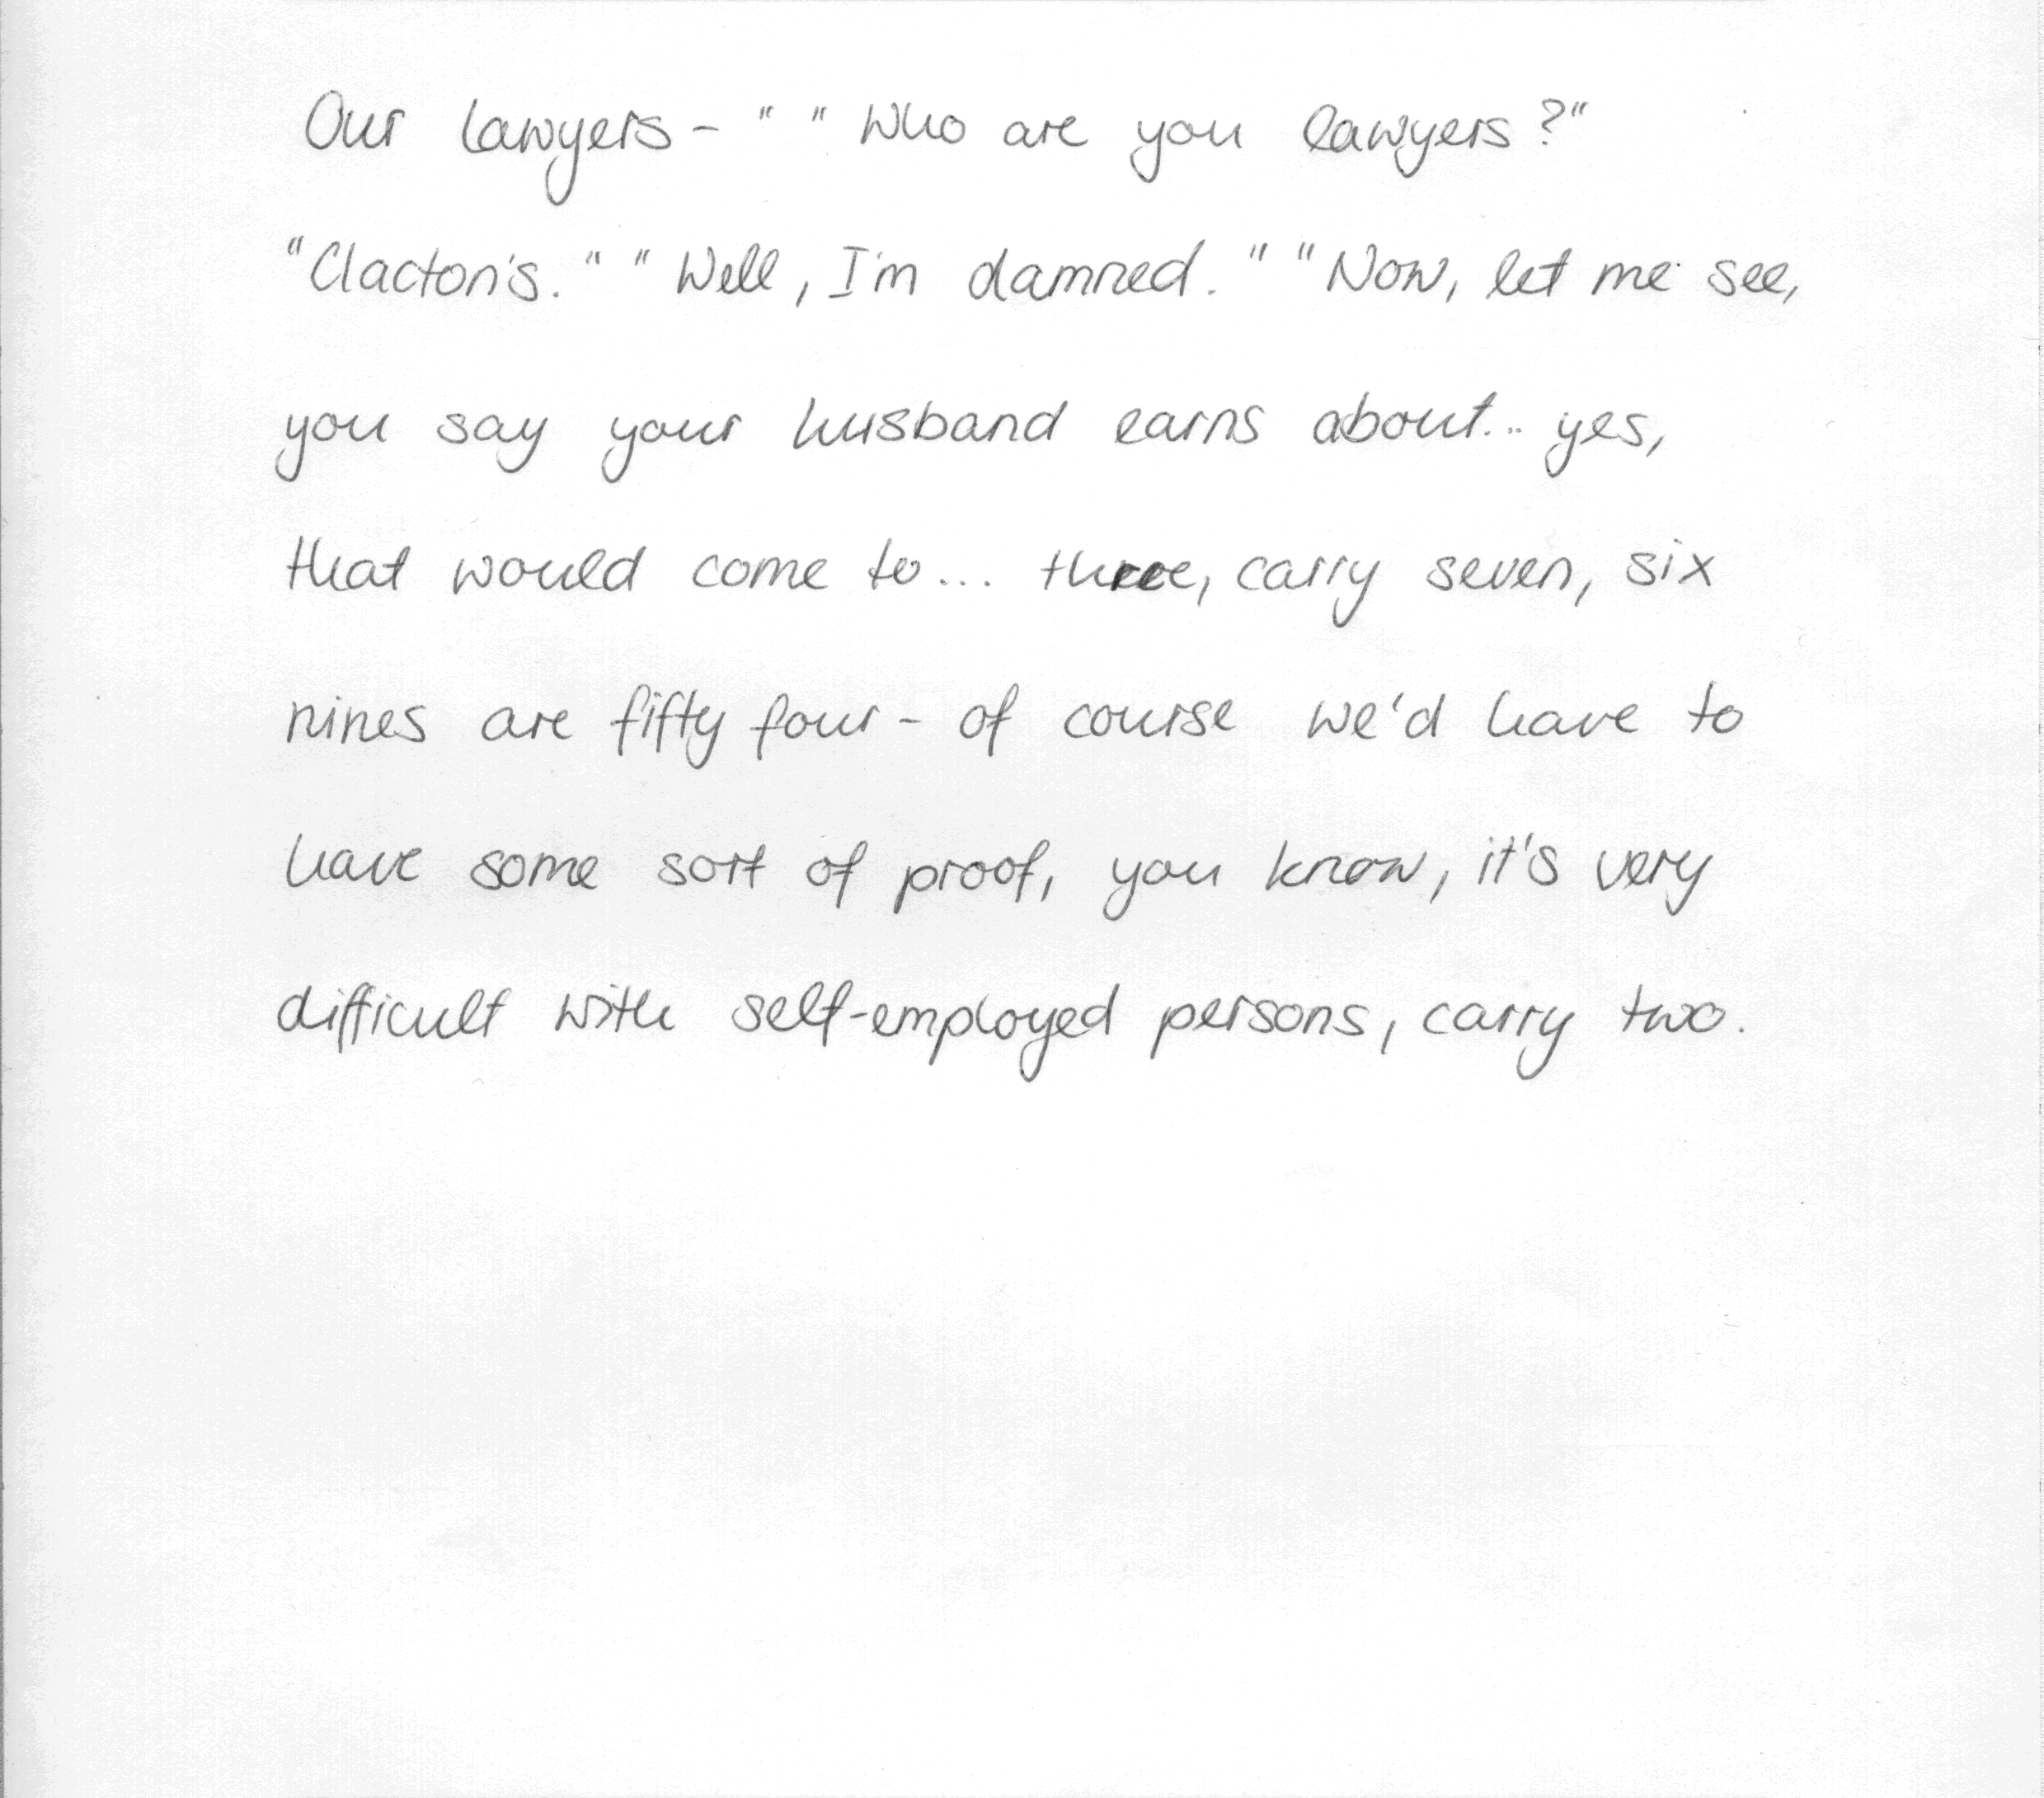 Our lawyers - " " Who are you lawyers ?"
"Clacton's. " " Well, I'm damned. " " Now, let me see,
you say your husband earns about... yes,
that would come to... three, carry seven, six
nines are fifty four - of course we'd have to
have some sort of proof, you know, it's very
difficult with self-employed persons, carry two.